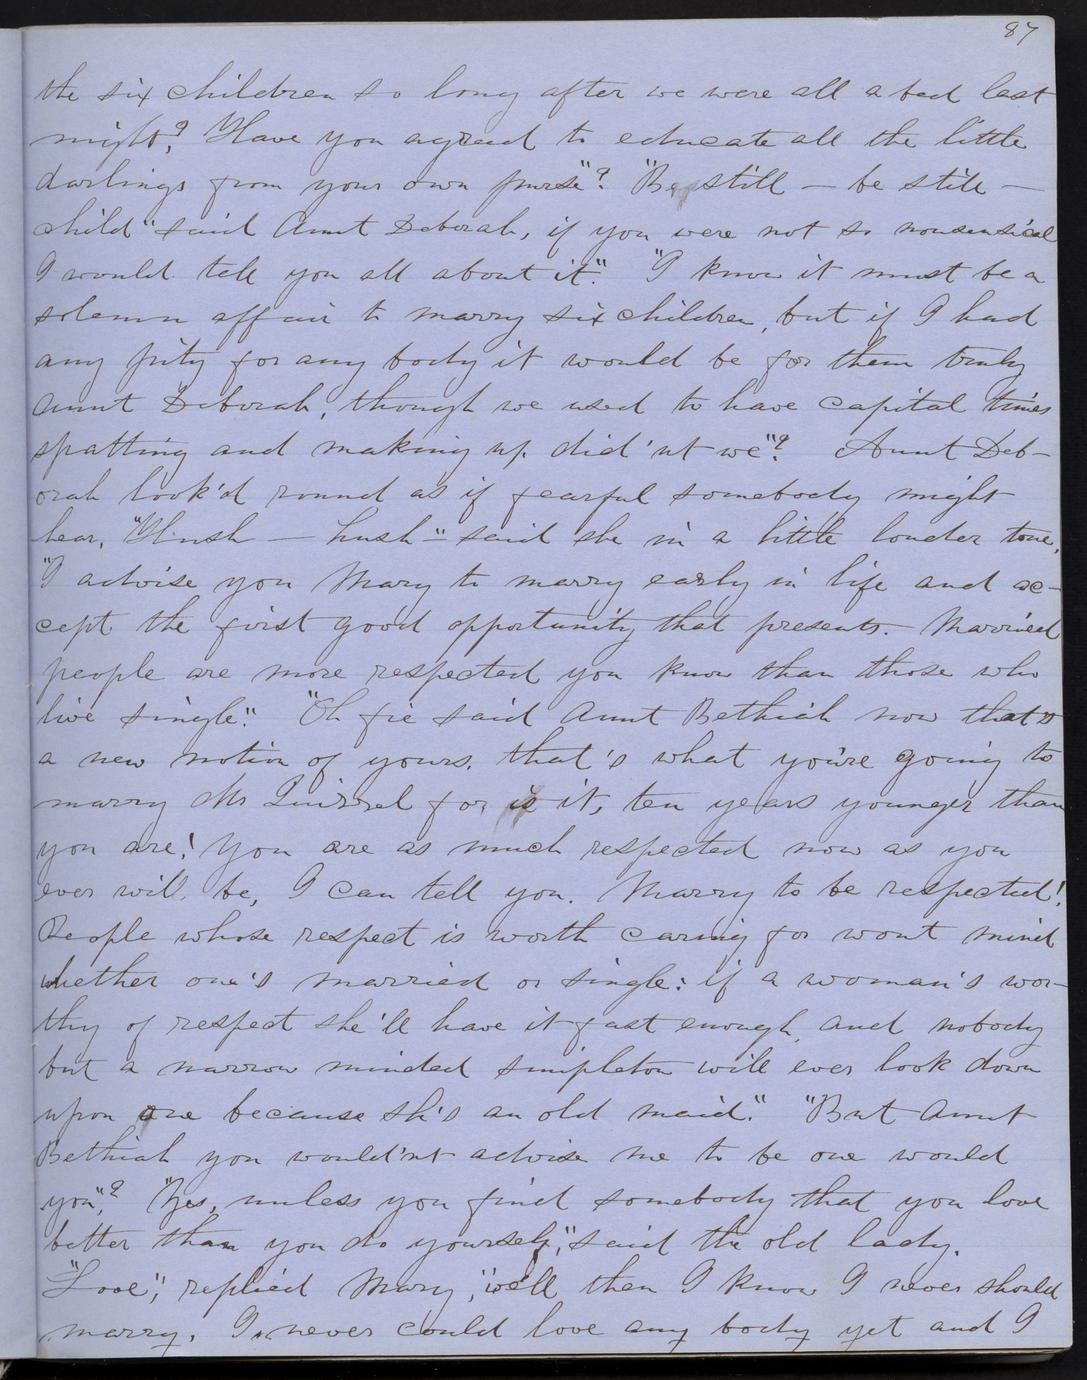 87
the six children so long after we were all a bed last
night? Have you agreed to educate all the little
darlings from your own purse"? "Be still — be still —
child" said Aunt Deborah, if you were not so nonsensical
I would tell you all about it." "I know it must be a
solemn affair to marry six children, but if I had
any pity for any body it would be for them truly
Aunt Deborah, though we used to have capital times
spatting and making up did'nt we"? Aunt Deb-
orah look'd round as if fearful somebody might
hear, "Hush — hush" said she in a little louder tone,
"I advise you Mary to marry early in life and ac-
cept the first good opportunity that presents. Married
people are more respected you know than those who
live single." "Oh fie said Aunt Bethiah now that's
a new notion of yours. that's what you're going to
marry Mr Quirrel for is it, ten years younger than
you are! You are as much respected now as you
ever will be, I can tell you. Marry to be respected!
People whose respect is worth caring for wont mind
whether one's married or single: if a woman's wor-
thy of respect she'll have it fast enough, and nobody
but a narrow minded simpleton will ever look down
upon one because she's an old maid." "But Aunt
Bethiah you would'nt advise me to be one would
you"? "Yes, unless you find somebody that you love
better than you do yourself," said the old lady.
"Love", replied Mary, "well then I know I never should
marry. I never could love any body yet and I